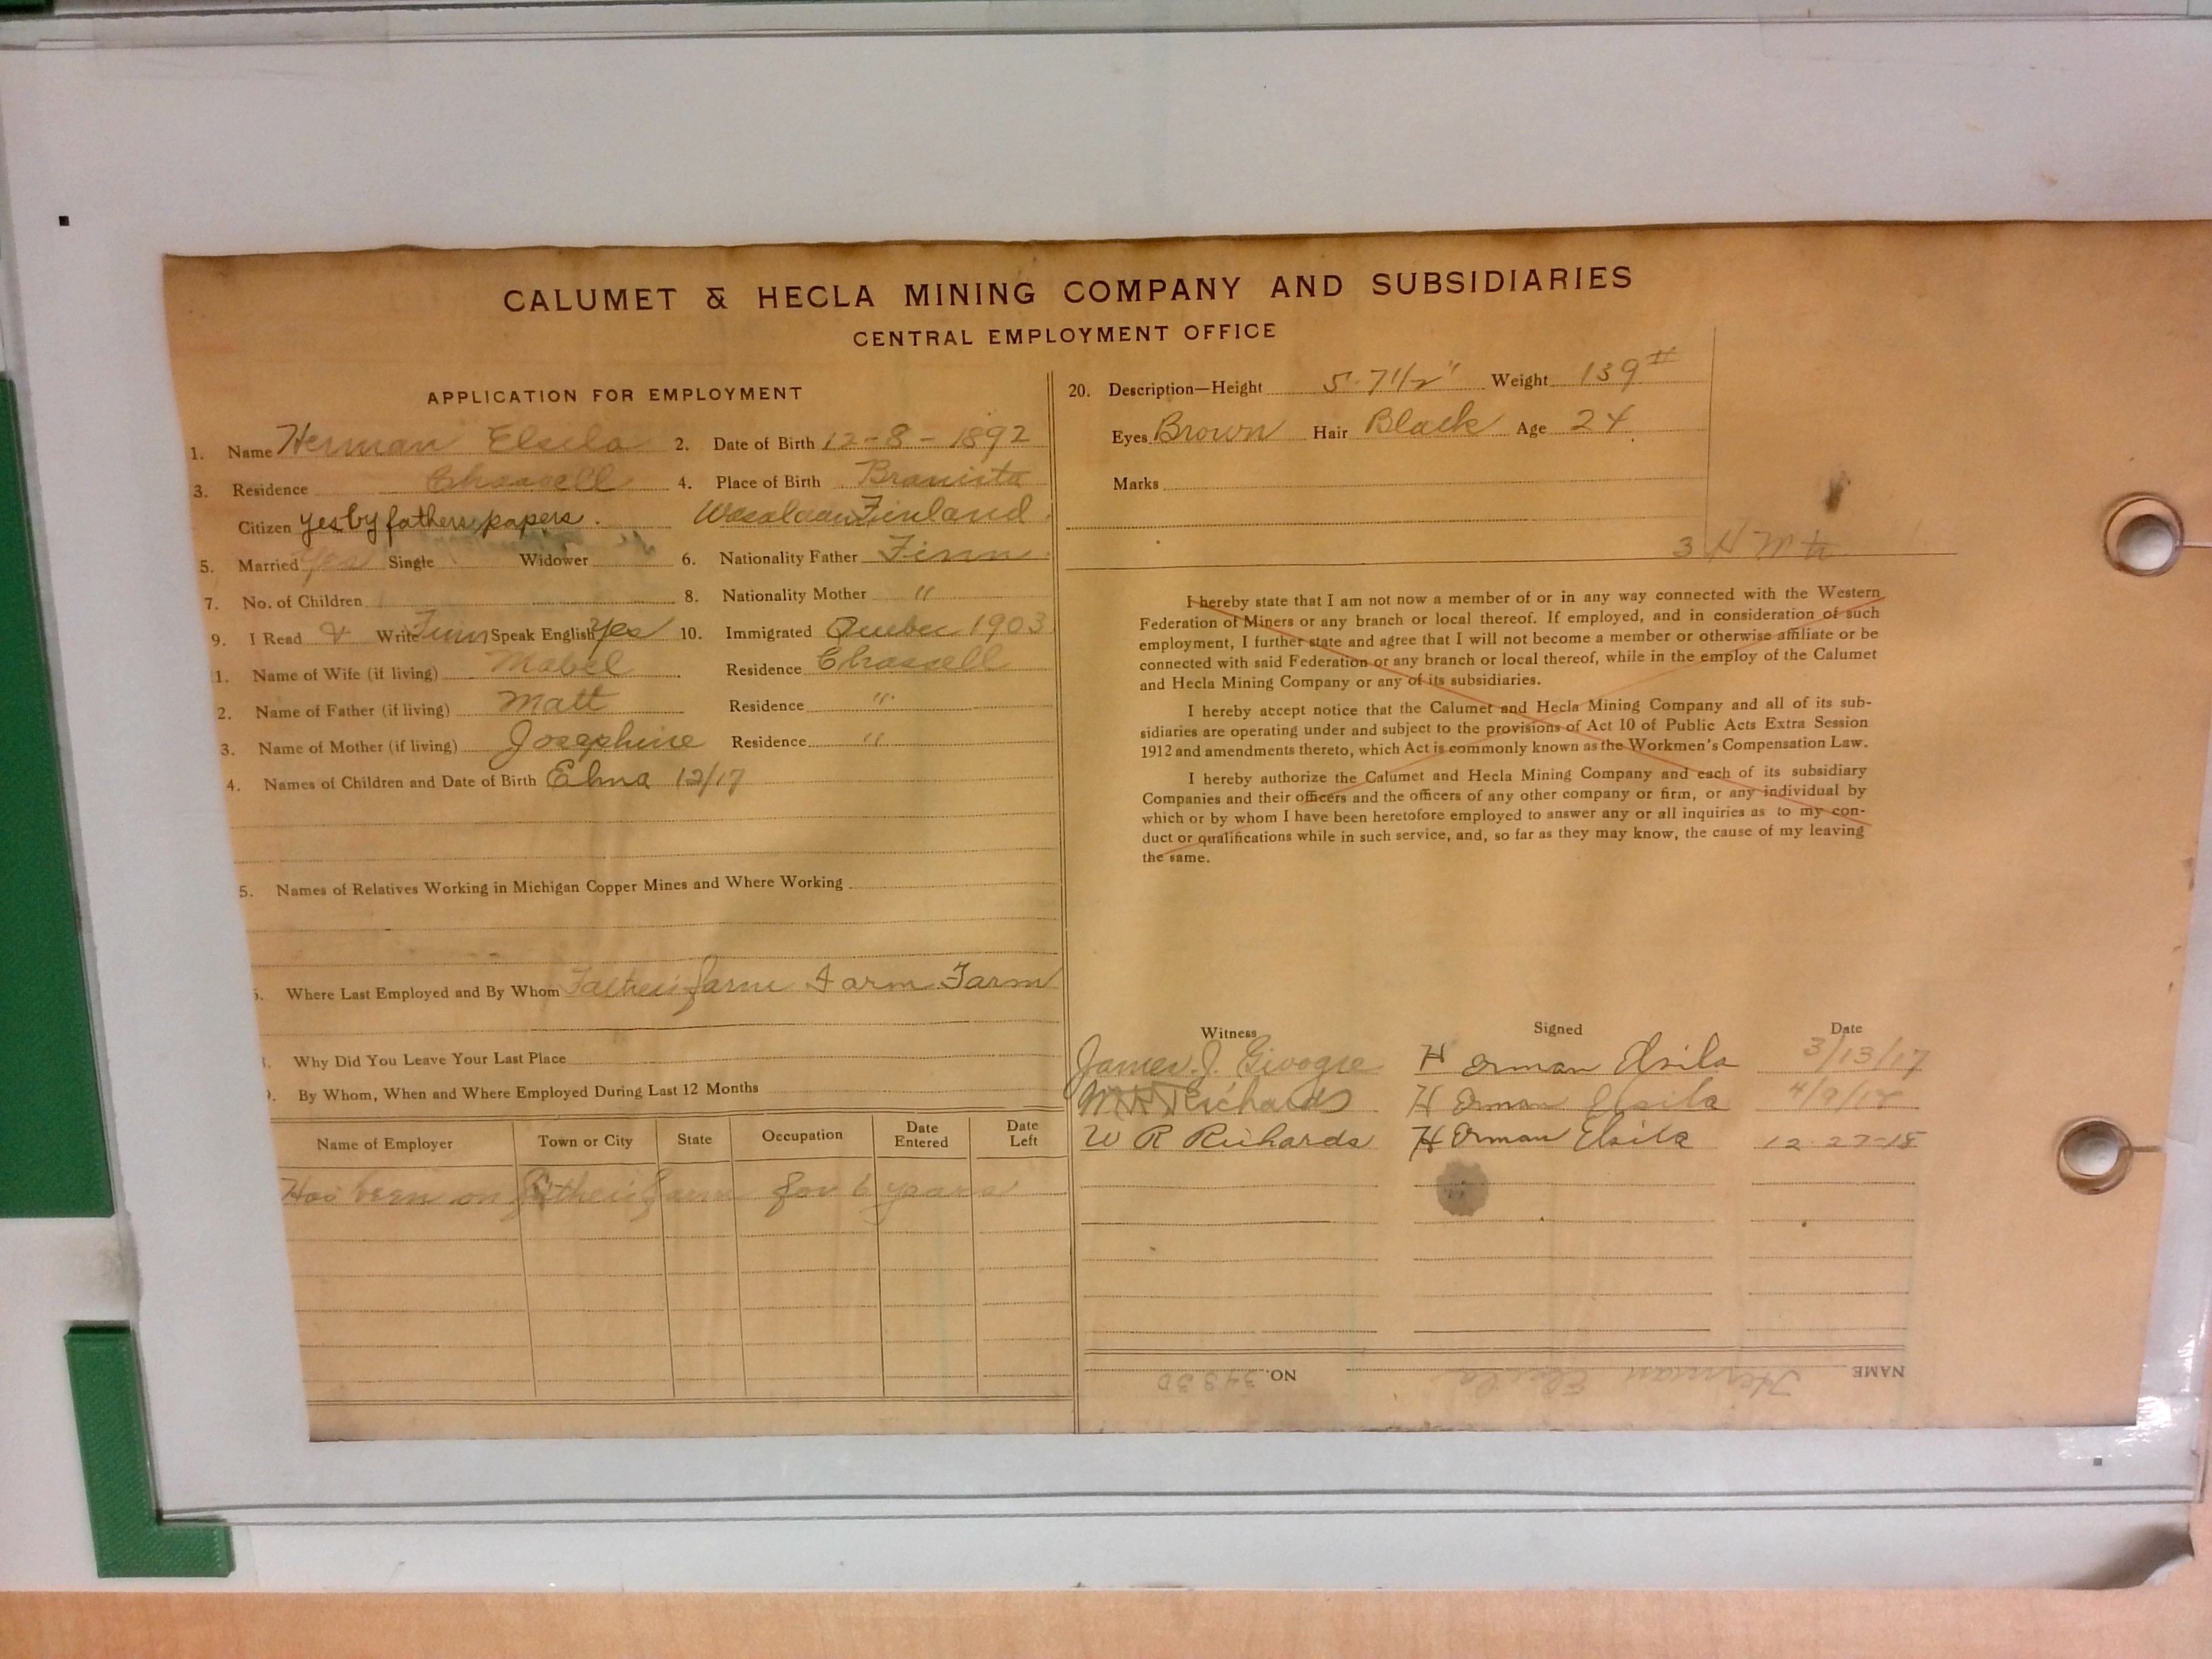 CALUMET & HECLA MINING COMPANY AND SUBSIDIARIES
CENTRAL EMPLOYMENT OFFICE
APPLICATION FOR EMPLOYMENT
1. Name Herman Elsila 2. Date of Birth 12-8-1892
3. Residence Chassell 4. Place of Birth
Citizen yes by fathers papers. Finland
5. Married Yes Single Widower 6. Nationality Father Finn
7. No. of Children 8. Nationality Mother "
9. I Read & Write Finn Speak English Yes 10. Immigrated Quebec 1903
1. Name of Wife (if living) Mabel Residence Chassell
2. Name of Father (if living) Matt Residence "
3. Name of Mother (if living) Josephine Residence "
4. Names of Children and Date of Birth Elma 12/17
5. Names of Relatives Working in Michigan Copper Mines and Where Working
Where Last Employed and By Whom Father's farm Farm Farm
Why Did You Leave Your Last Place
By Whom, When and Where Employed During Last 12 Months
Name of Employer Town or City State Occupation Date Entered Date Left
Has been on father's farm for 6 years
20. Description—Height 5-7 1/2" Weight 139#
Eyes Brown Hair Black Age 24
Marks
3
I hereby state that I am not now a member of or in any way connected with the Western
Federation of Miners or any branch or local thereof. If employed, and in consideration of such
employment, I further state and agree that I will not become a member or otherwise affiliate or be
connected with said Federation or any branch or local thereof, while in the employ of the Calumet
and Hecla Mining Company or any of its subsidiaries.
I hereby accept notice that the Calumet and Hecla Mining Company and all of its sub-
sidiaries are operating under and subject to the provisions of Act 10 of Public Acts Extra Session
1912 and amendments thereto, which Act is commonly known as the Workmen's Compensation Law.
I hereby authorize the Calumet and Hecla Mining Company and each of its subsidiary
Companies and their officers and the officers of any other company or firm, or any individual by
which or by whom I have been heretofore employed to answer any or all inquiries as to my con-
duct or qualifications while in such service, and, so far as they may know, the cause of my leaving
the same.
Witness Signed Date
James J. Herman Elsila 3/13/17
Richards Herman Elsila 4/9/18
W R Richards Herman Elsila 12-27-18
NAME Herman Elsila NO. 34330